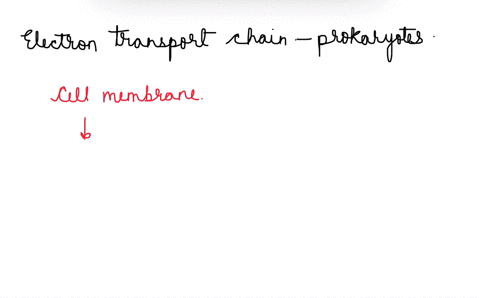 Electron transport chain – prokaryotes.
Cell membrane.
↓